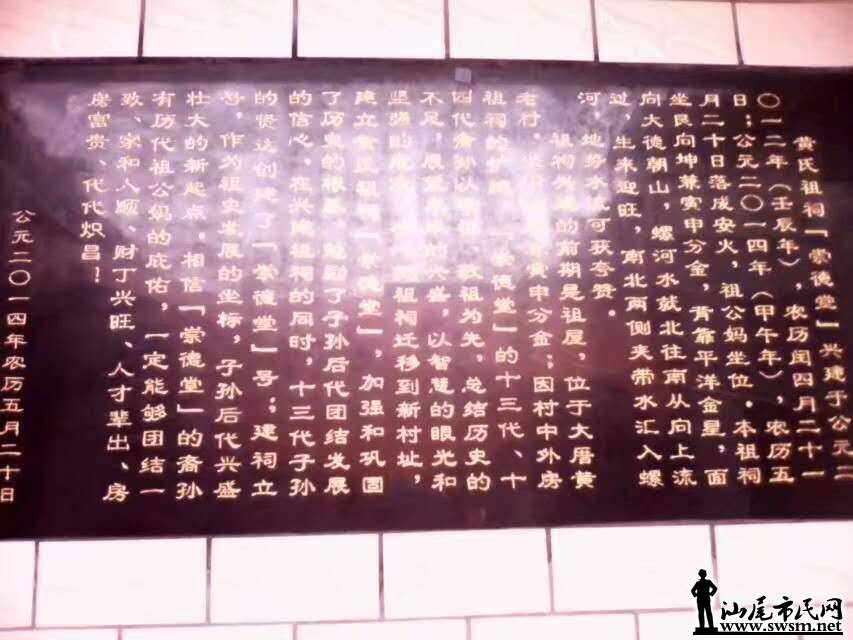 黄氏祖祠「崇德堂」兴建于公元二
〇一二年(壬辰年),农历闰四月二十一
日;公元二〇一四年(甲午年),农历五
月二十日落成安火,祖公妈坐位。本祖祠
坐艮向坤兼寅申分金,背靠平洋金星,面
向大德朝山,螺河水就北往南从向上流
过,生来迎旺,南北两侧夹带水汇入螺
河,地势水 可获夸赞。
祖祠兴建的前期是祖屋,位于大厝黄
老村, 寅申分金;因村中外房
祖祠的 「崇德堂」的十三代、十
四代裔孙以 敬祖为先,总结历史的
不足,展望 的兴盛,以智慧的眼光和
坚强的 祖祠迁移到新村址,
建立黄氏祖祠「崇德堂」,加强和巩固
了历史的根基, 励了子孙后代团结发展
的信心。在兴建祖祠的同时,十三代子孙
的贤达创建了「崇德堂」号;建祠立
号,作为祖宗发展的坐标,子孙后代兴盛
壮大的新起点。相信「崇德堂」的裔孙
有历代祖公妈的庇佑,一定能够团结一
致、家和人顺、财丁兴旺、人才辈出、房
房富贵、代代炽昌!
公元二〇一四年农历五月二十日
汕尾市民网
www.swsm.net